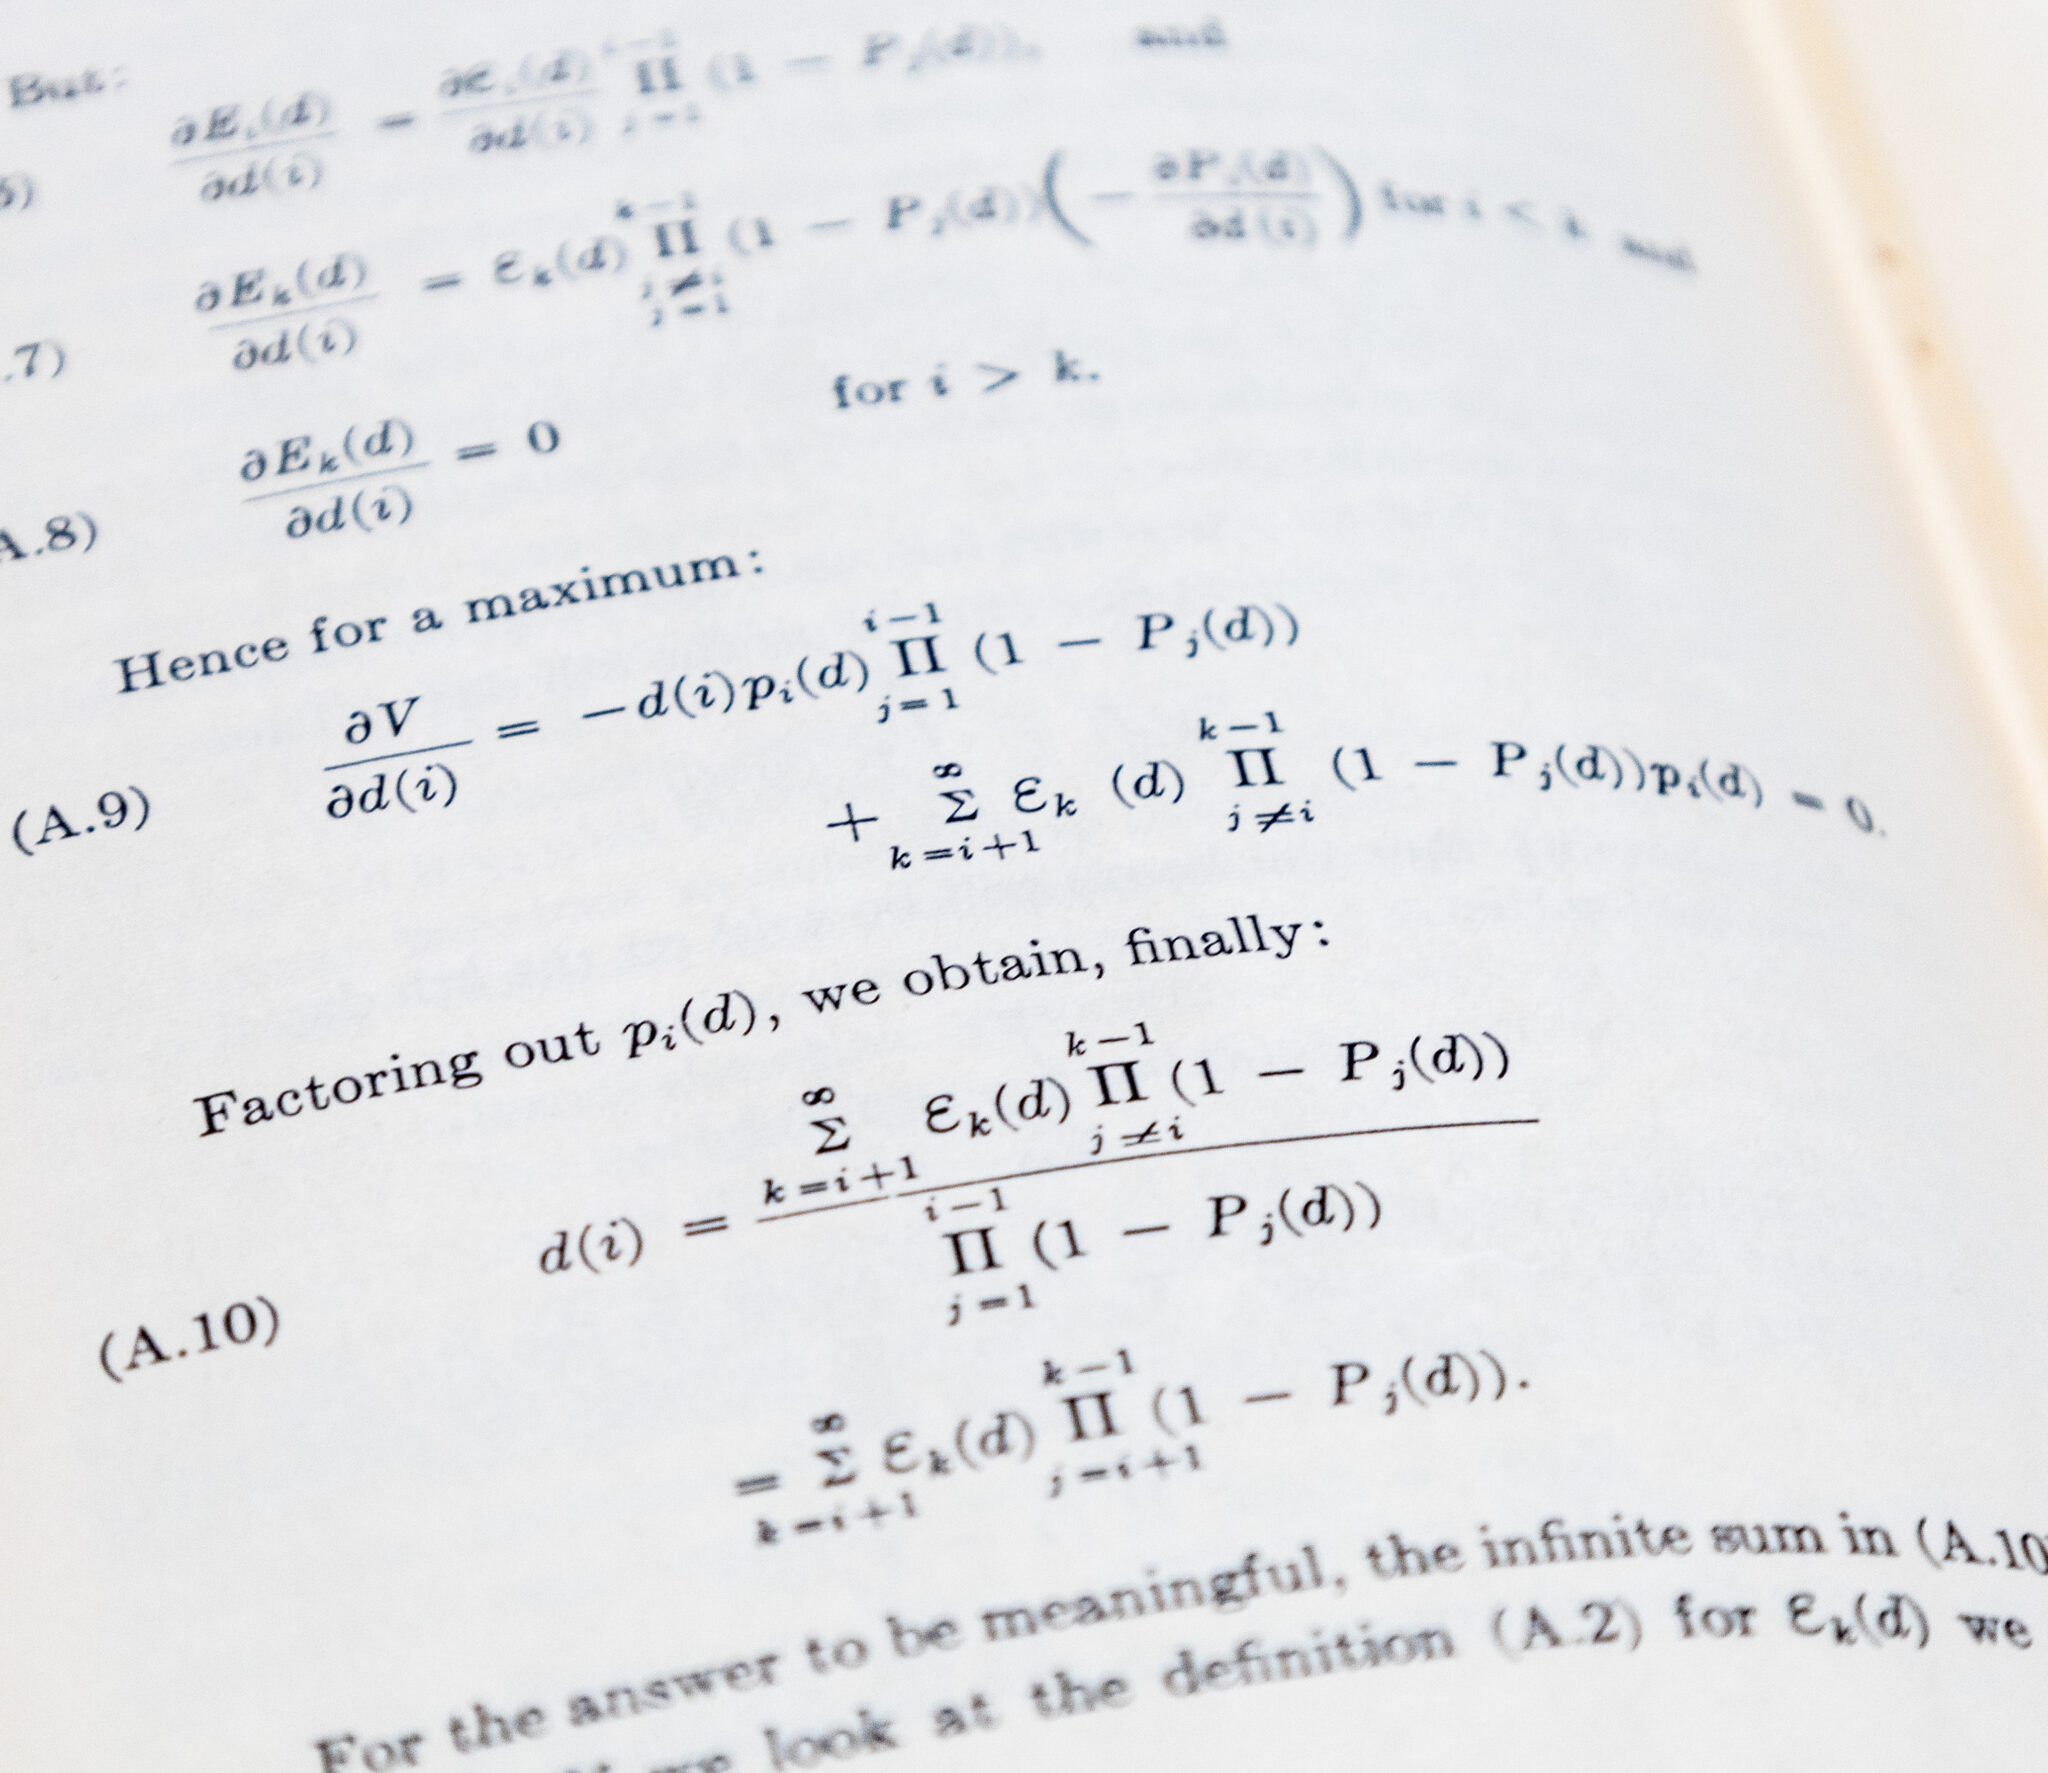 But:
∂E (d)/∂d(i) = ∂ℰ (d)/∂d(i) Π (1 − P_j(d)), and
.7) ∂E_k(d)/∂d(i) = ℰ_k(d) Π_{j≠i, j=1}^{k−1} (1 − P_j(d)) (− ∂P (d)/∂d(i)) for i < k and
A.8) ∂E_k(d)/∂d(i) = 0 for i > k.
Hence for a maximum:
(A.9) ∂V/∂d(i) = −d(i)p_i(d) Π_{j=1}^{i−1} (1 − P_j(d))
+ Σ_{k=i+1}^{∞} ℰ_k (d) Π_{j≠i}^{k−1} (1 − P_j(d))p_i(d) = 0.
Factoring out p_i(d), we obtain, finally:
(A.10) d(i) = Σ_{k=i+1}^{∞} ℰ_k(d) Π_{j≠i}^{k−1} (1 − P_j(d)) / Π_{j=1}^{i−1} (1 − P_j(d))
= Σ_{k=i+1}^{∞} ℰ_k(d) Π_{j=i+1}^{k−1} (1 − P_j(d)).
For the answer to be meaningful, the infinite sum in (A.10
we look at the definition (A.2) for ℰ_k(d) we